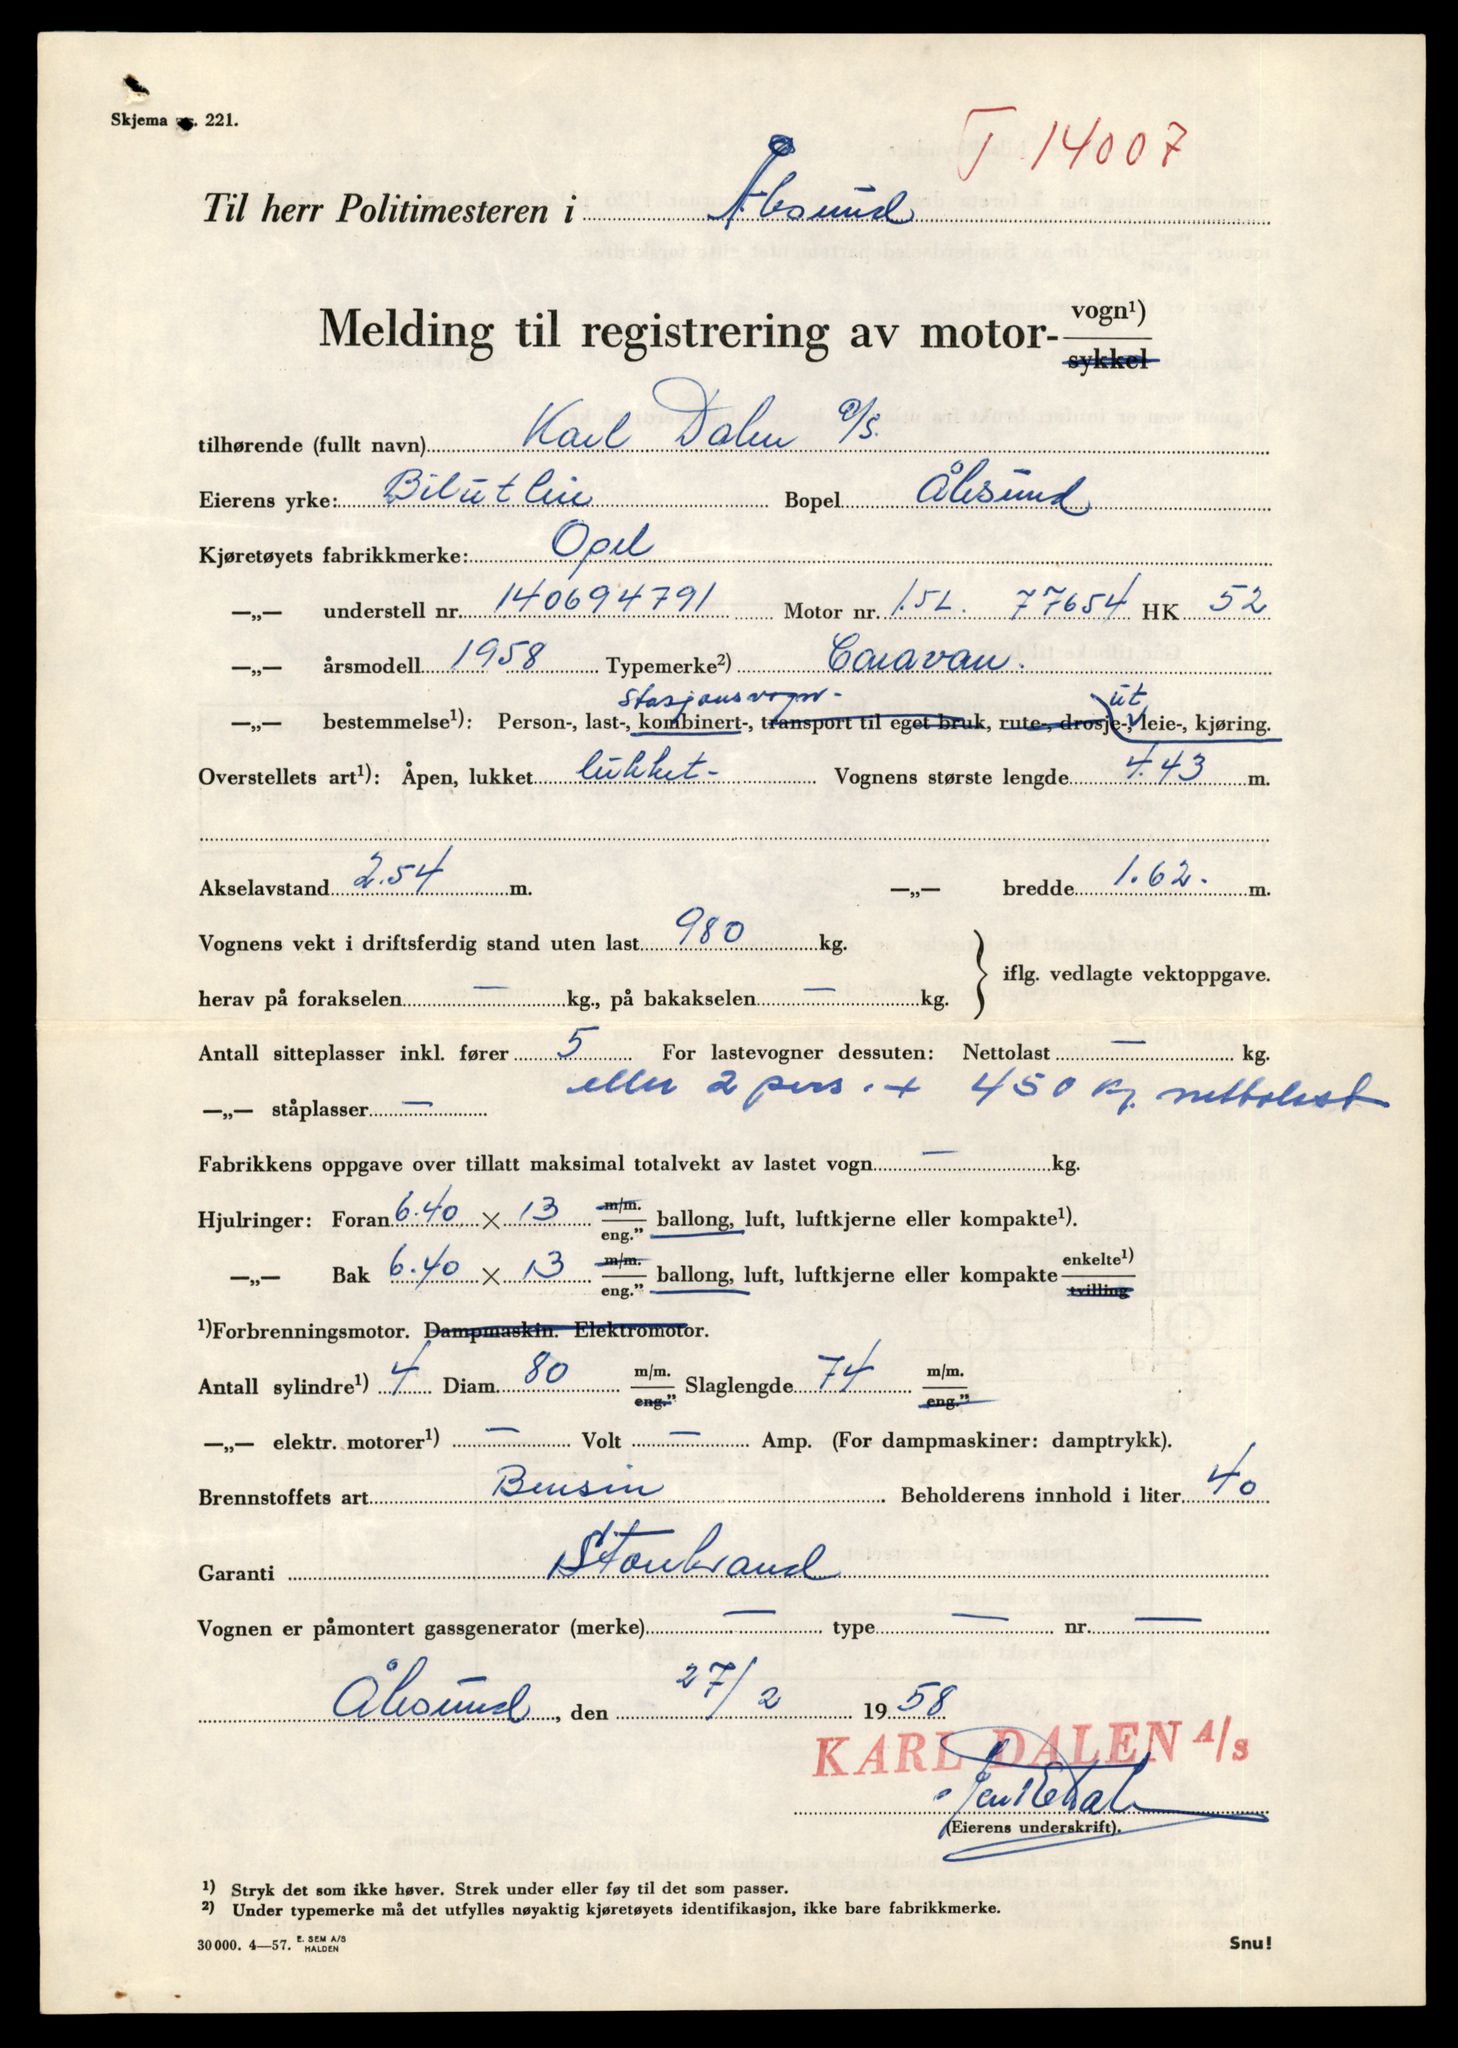 Skjema nr. 221.
T 14007
Til herr Politimesteren i Ålesund
Melding til registrering av motor- vogn¹)
sykkel
tilhørende (fullt navn) Karl Dalen A/S.
Eierens yrke: Bilutleie Bopel Ålesund
Kjøretøyets fabrikkmerke: Opel
—„— understell nr. 140694791 Motor nr. 1.5L. 77654 HK 52
—„— årsmodell 1958 Typemerke²) Caravan.
stasjonsvogn- ut
—„— bestemmelse¹): Person-, last-, kombinert-, transport til eget bruk, rute-, drosje-, leie-, kjøring.
Overstellets art¹): Åpen, lukket lukket- Vognens største lengde 4.43 m.
Akselavstand 2.54 m. —„— bredde 1.62. m.
Vognens vekt i driftsferdig stand uten last 980 kg.
iflg. vedlagte vektoppgave.
herav på forakselen — kg., på bakakselen — kg.
Antall sitteplasser inkl. fører 5 For lastevogner dessuten: Nettolast — kg.
eller 2 pers. + 450 kg. nettolast
—„— ståplasser —
Fabrikkens oppgave over tillatt maksimal totalvekt av lastet vogn — kg.
Hjulringer: Foran 6.40 × 13 m/m. eng.” ballong, luft, luftkjerne eller kompakte¹).
—„— Bak 6.40 × 13 m/m. eng.” ballong, luft, luftkjerne eller kompakte enkelte¹) tvilling
¹)Forbrenningsmotor. Dampmaskin. Elektromotor.
Antall sylindre¹) 4 Diam. 80 m/m. eng.” Slaglengde 74 m/m. eng.”
—„— elektr. motorer¹) — Volt — Amp. (For dampmaskiner: damptrykk).
Brennstoffets art Bensin Beholderens innhold i liter 40
Garanti Storebrand
Vognen er påmontert gassgenerator (merke) — type — nr. —
Ålesund, den 27/2 1958
KARL DALEN A/S
(Eierens underskrift).
¹) Stryk det som ikke høver. Strek under eller føy til det som passer.
²) Under typemerke må det utfylles nøyaktig kjøretøyets identifikasjon, ikke bare fabrikkmerke.
30 000. 4—57. E. SEM A/S HALDEN
Snu!